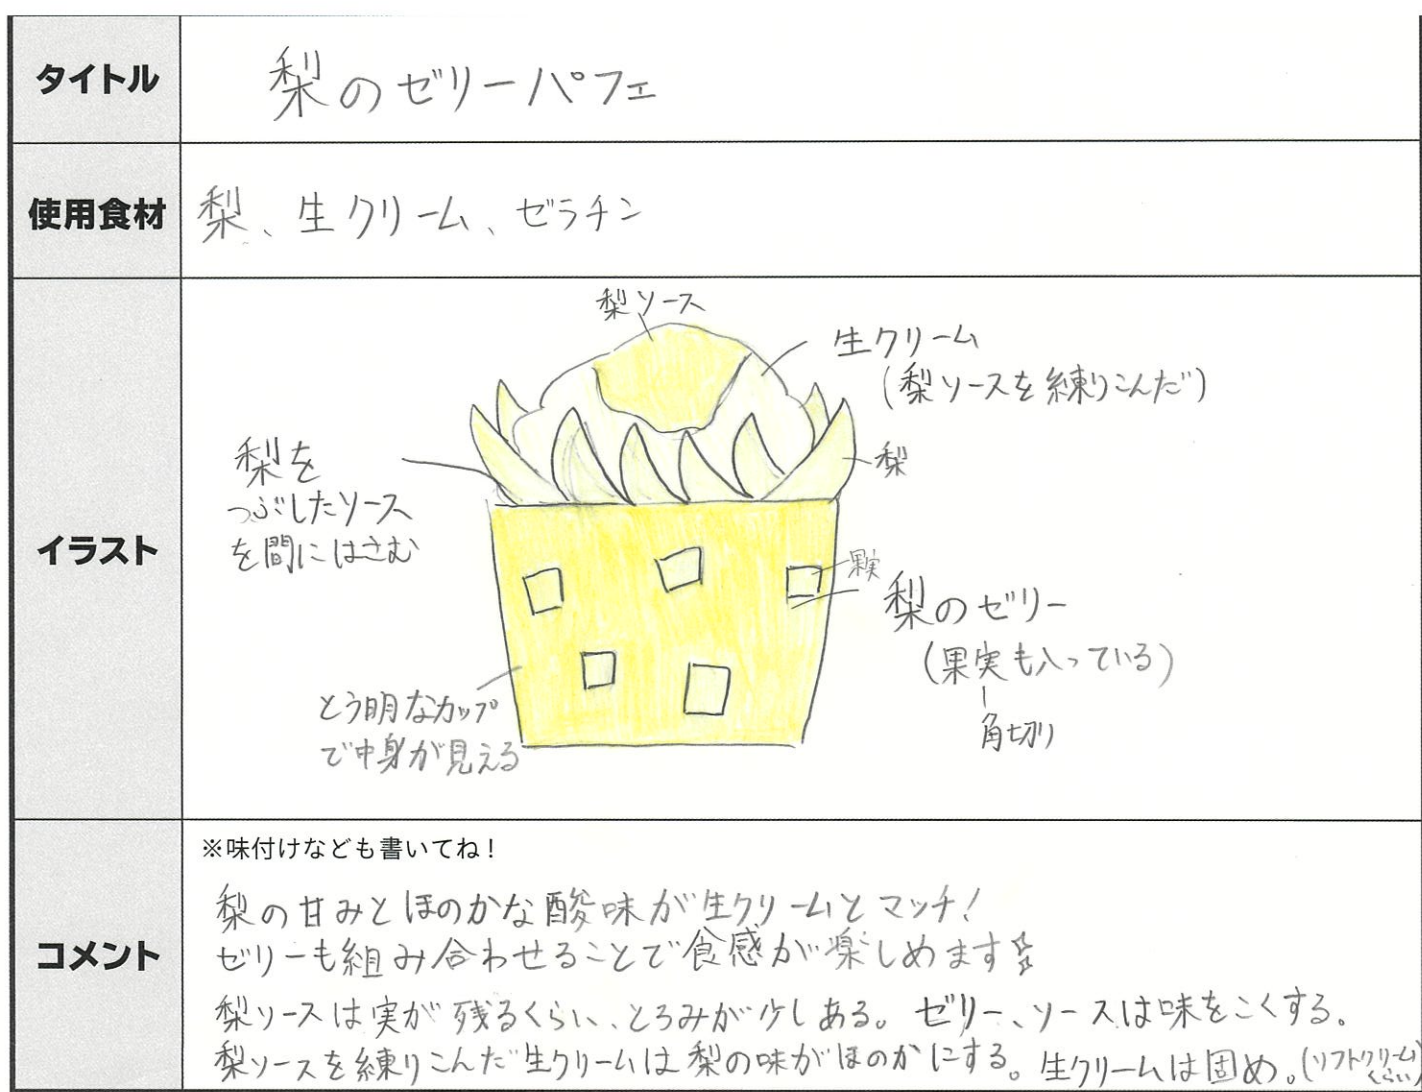 タイトル
梨のゼリーパフェ
使用食材
梨、生クリーム、ゼラチン
イラスト
梨ソース
生クリーム
(梨ソースを練りこんだ)
梨
梨を
つぶしたソース
を間にはさむ
果実
梨のゼリー
(果実も入っている)
角切り
とう明なカップ
で中身が見える
コメント
※味付けなども書いてね！
梨の甘みとほのかな酸味が生クリームとマッチ！
ゼリーも組み合わせることで食感が楽しめます☆
梨ソースは実が残るくらい、とろみが少しある。ゼリー、ソースは味をこくする。
梨ソースを練りこんだ生クリームは梨の味がほのかにする。生クリームは固め。(ソフトクリームくらい)